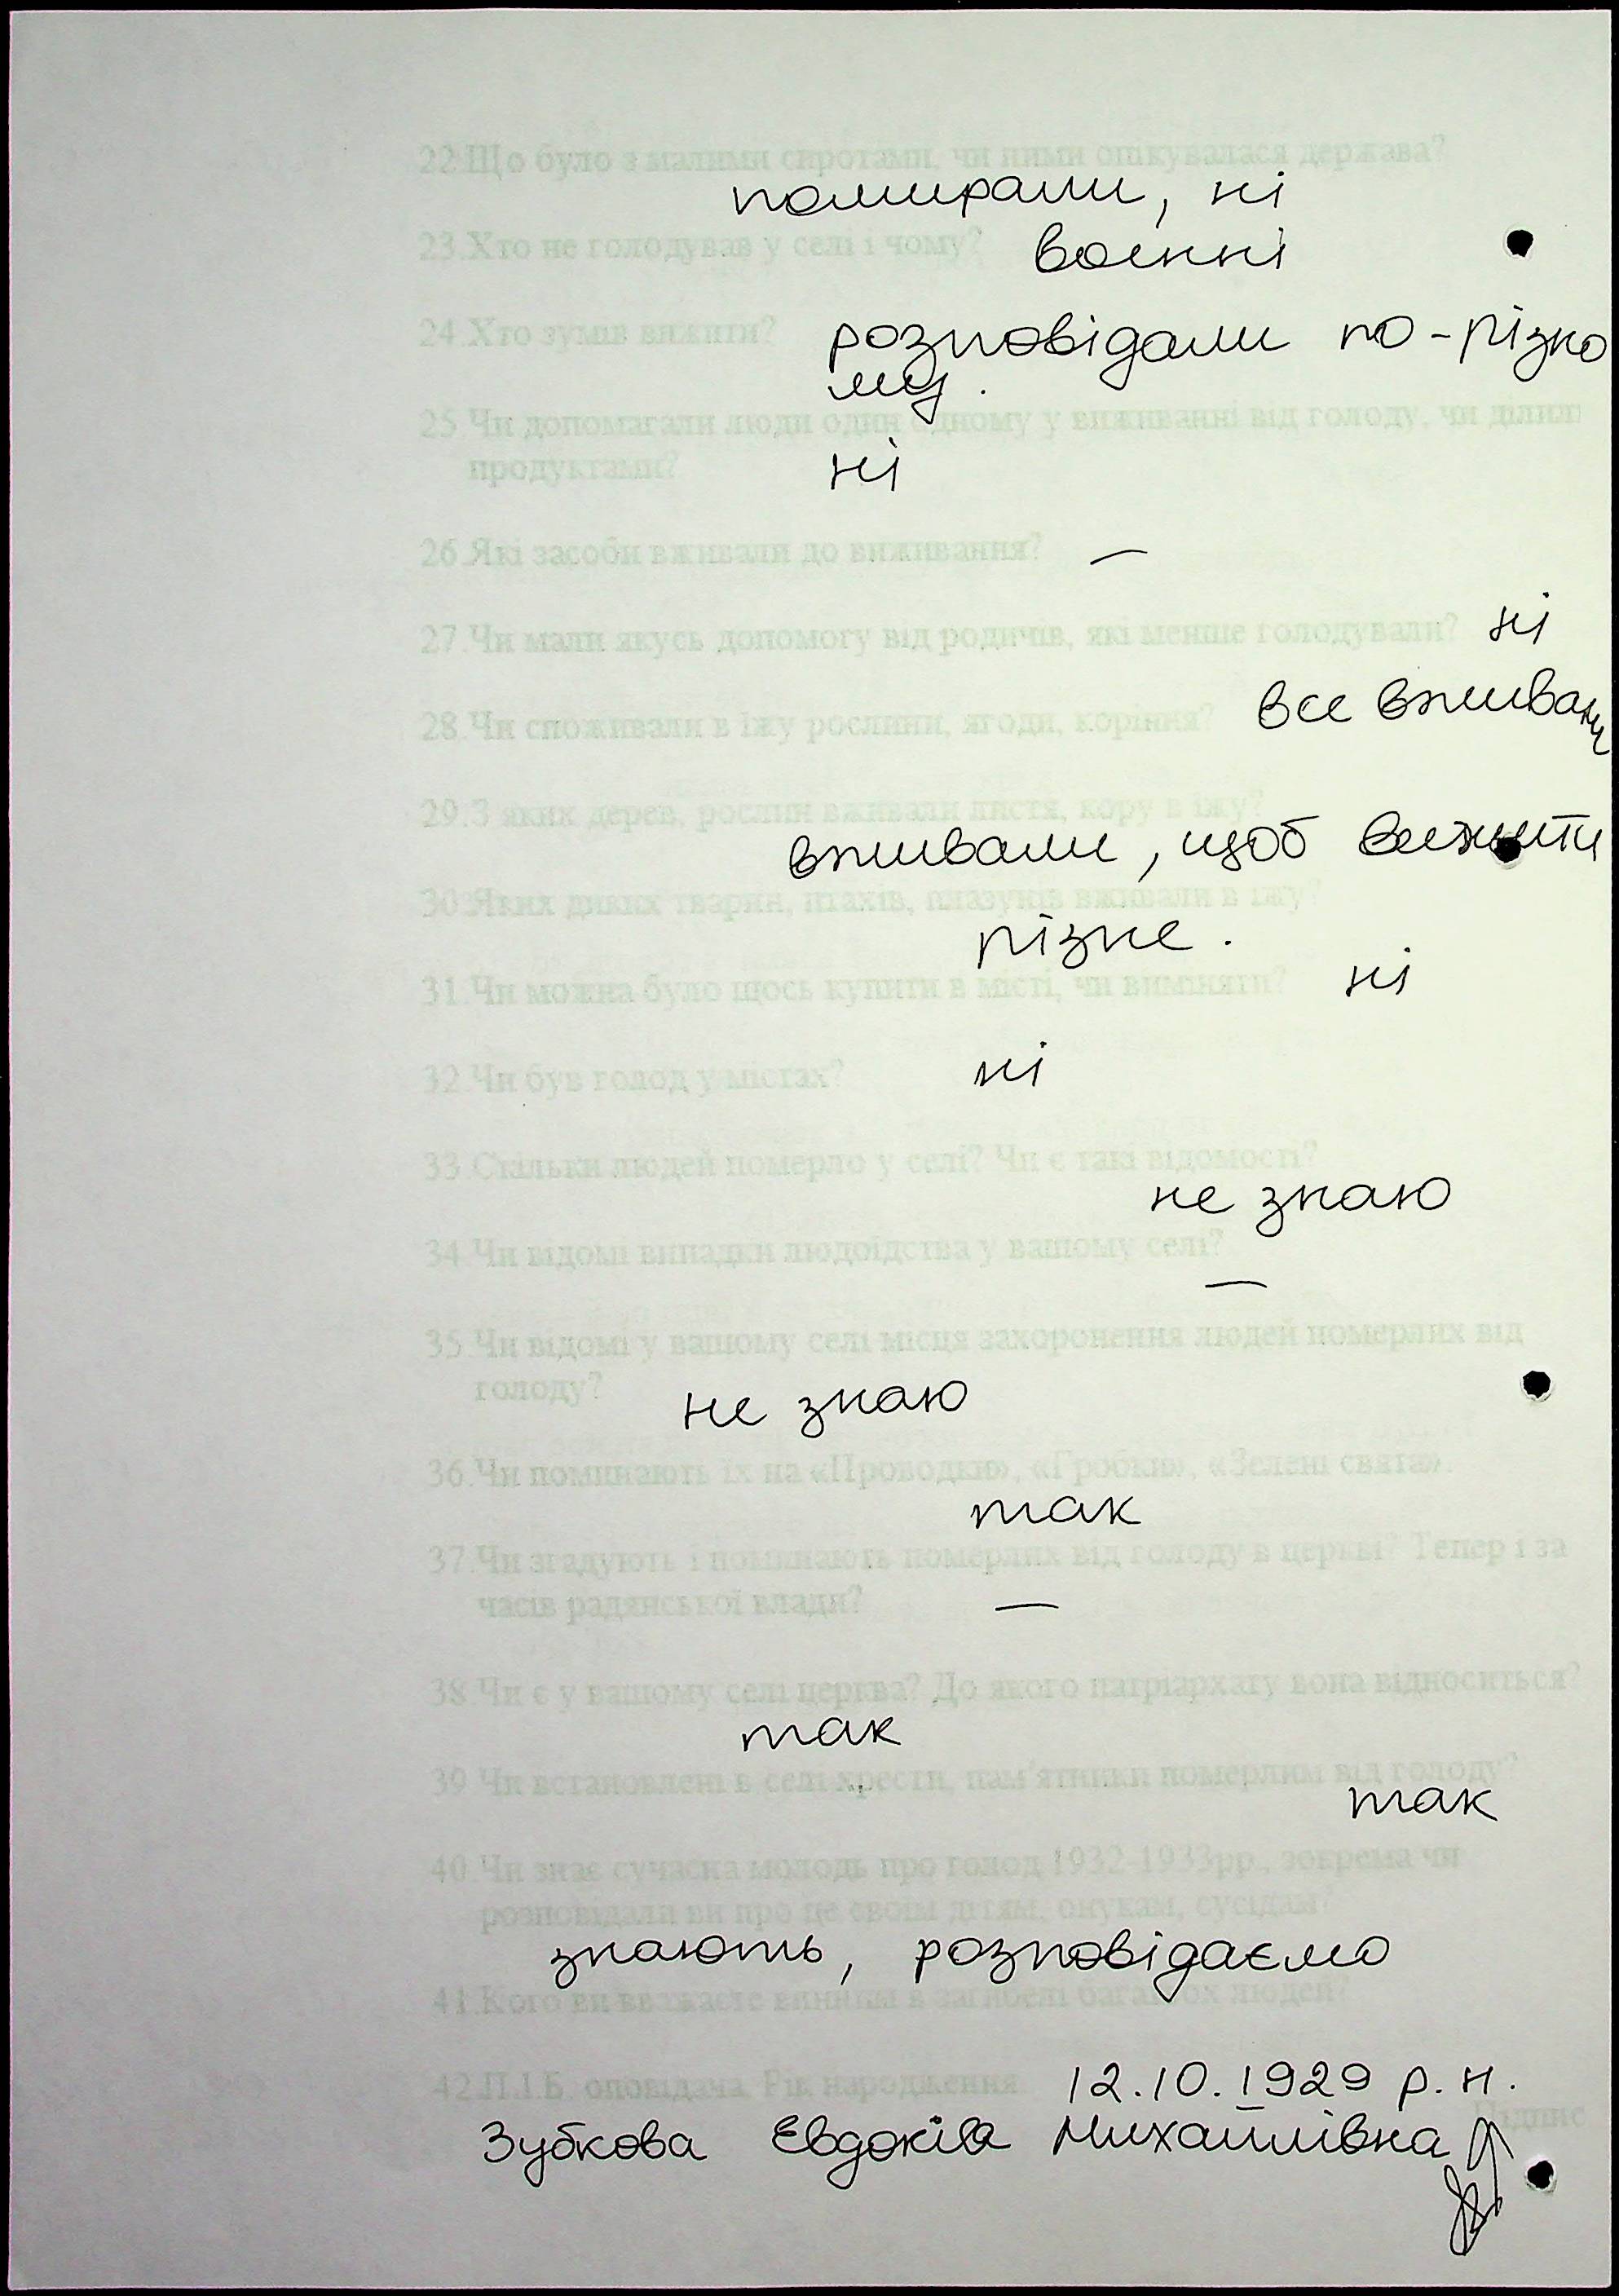 22.Що було з малими сиротами, чи ними опікувалася держава?
помирали, ні
23.Хто не голодував у селі і чому? воєнні
24.Хто зумів вижити? розповідали по-різно
му.
25.Чи допомагали люди один одному у виживанні від голоду, чи ділили
продуктами? ні
26.Які засоби вживали до виживання? —
27.Чи мали якусь допомогу від родичів, які менше голодували? ні
28.Чи споживали в їжу рослини, ягоди, коріння? все вживали
29.З яких дерев, рослин вживали листя, кору в їжу?
вживали, щоб вижити
30.Яких диких тварин, птахів, плазунів вживали в їжу?
різне.
31.Чи можна було щось купити в місті, чи виміняти? ні
32.Чи був голод у містах? ні
33.Скільки людей померло у селі? Чи є такі відомості?
не знаю
34.Чи відомі випадки людоїдства у вашому селі?
—
35.Чи відомі у вашому селі місця захоронення людей померлих від
голоду? не знаю
36.Чи поминають їх на «Проводки», «Гробки», «Зелені свята».
так
37.Чи згадують і поминають померлих від голоду в церкві? Тепер і за
часів радянської влади? —
38.Чи є у вашому селі церква? До якого патріархату вона відноситься?
так
39.Чи встановлені в селі хрести, пам'ятники померлим від голоду?
так
40.Чи знає сучасна молодь про голод 1932-1933рр., зокрема чи
розповідали ви про це своїм дітям, онукам, сусідам?
знають, розповідаємо
41.Кого ви вважаєте винним в загибелі багатьох людей?
42.П.І.Б. оповідача. Рік народження 12.10.1929 р.н.
Підпис
Зубкова Євдокія Михайлівна